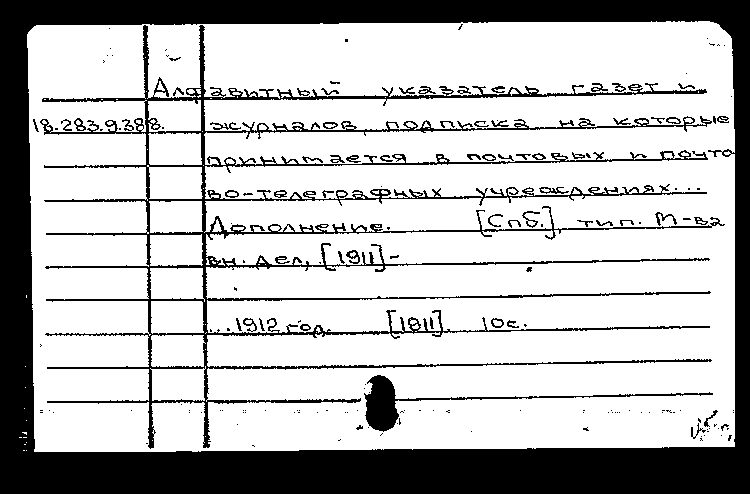 Алфавитный указатель газет и
18.283.9.388. журналов, подписка на которые
принимается в почтовых и почто
во-телеграфных учреждениях...
Дополнение. [Спб.], тип. М-ва
вн. дел, [1911]-
...1912 год. [1911]. 10с.